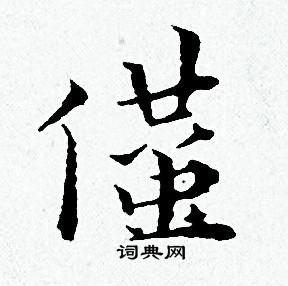 僅
词典网